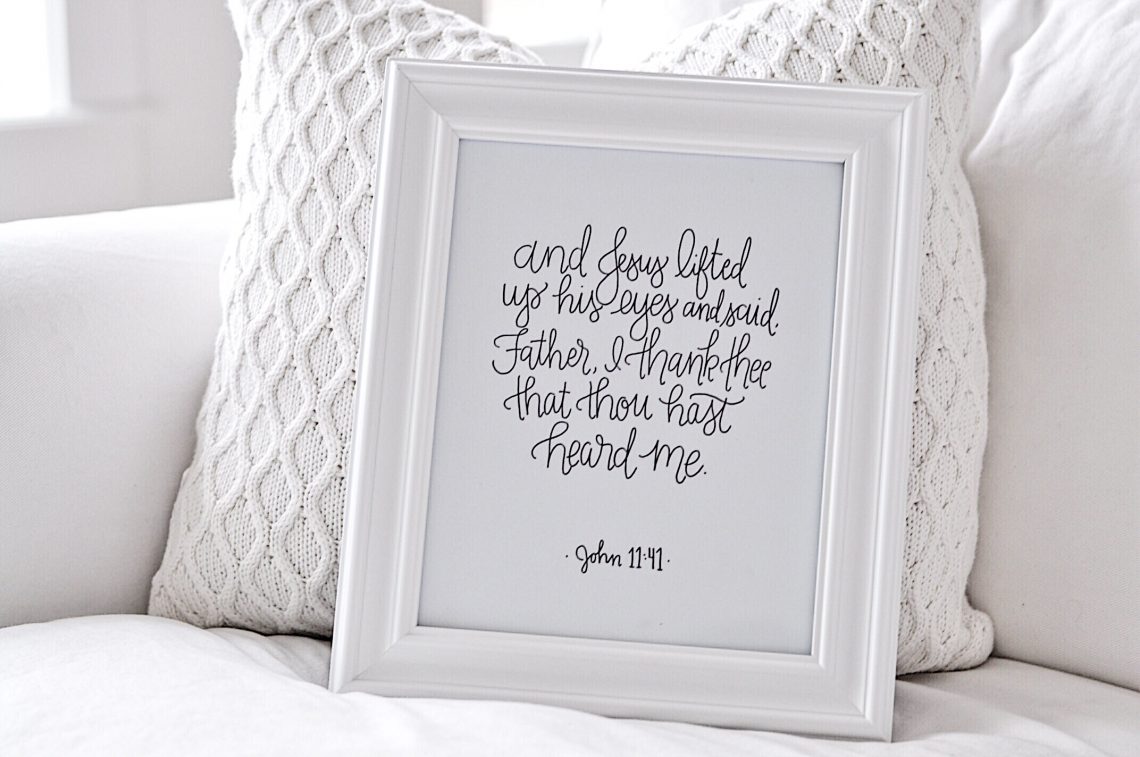 and Jesus lifted
up his eyes and said,
Father, I thank thee
that thou hast
heard me.
· John 11:41 ·